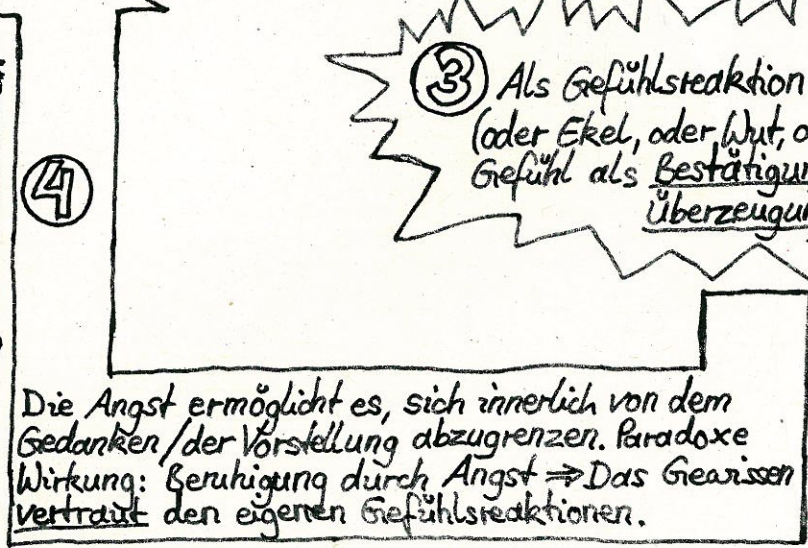 3 Als Gefühlsreaktion
(oder Ekel, oder Wut,
Gefühl als Bestätigu
Überzeugu
4
Die Angst ermöglicht es, sich innerlich von dem
Gedanken/der Vorstellung abzugrenzen. Paradoxe
Wirkung: Beruhigung durch Angst ⇒ Das Gewissen
vertraut den eigenen Gefühlsreaktionen.